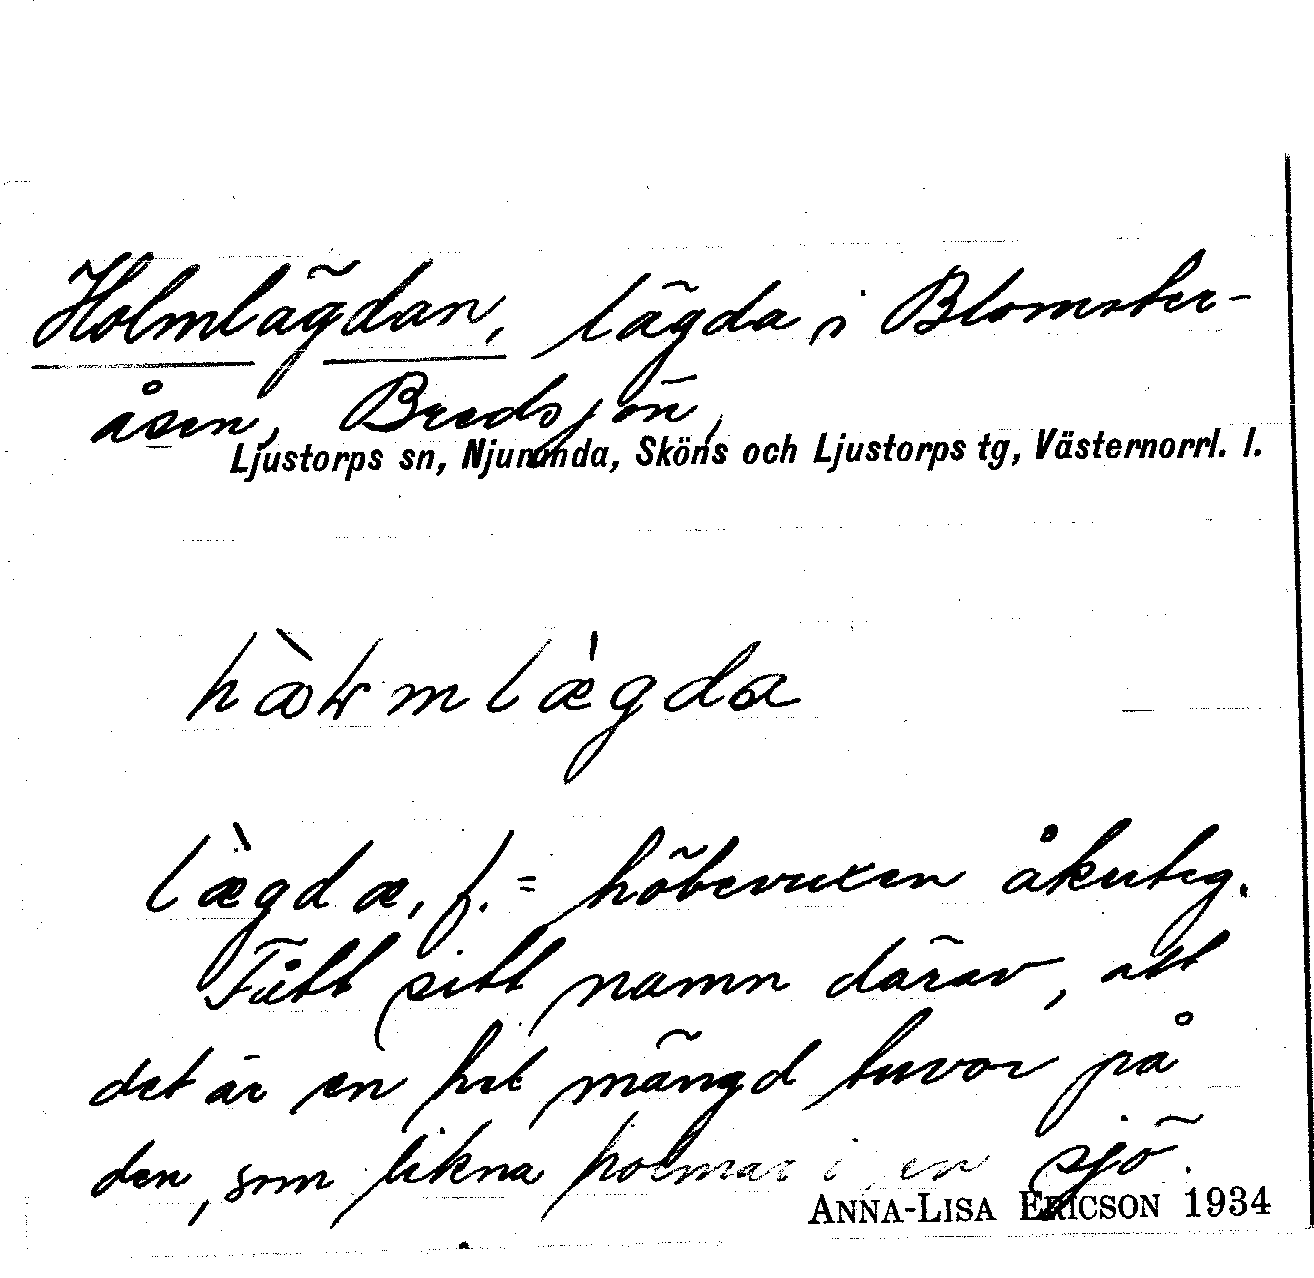 Holmlägdan, lägda i Blomster-
åsen, Bredsjön,
Ljustorps sn, Njurunda, Sköns och Ljustorps tg, Västernorrl. l.
lægda, f. = höbevuxen åkerteg.
Fått sitt namn därav, att
det är en hel mängd tuvor på
den, som likna holmar i en sjö.
ANNA-LISA ERICSON 1934